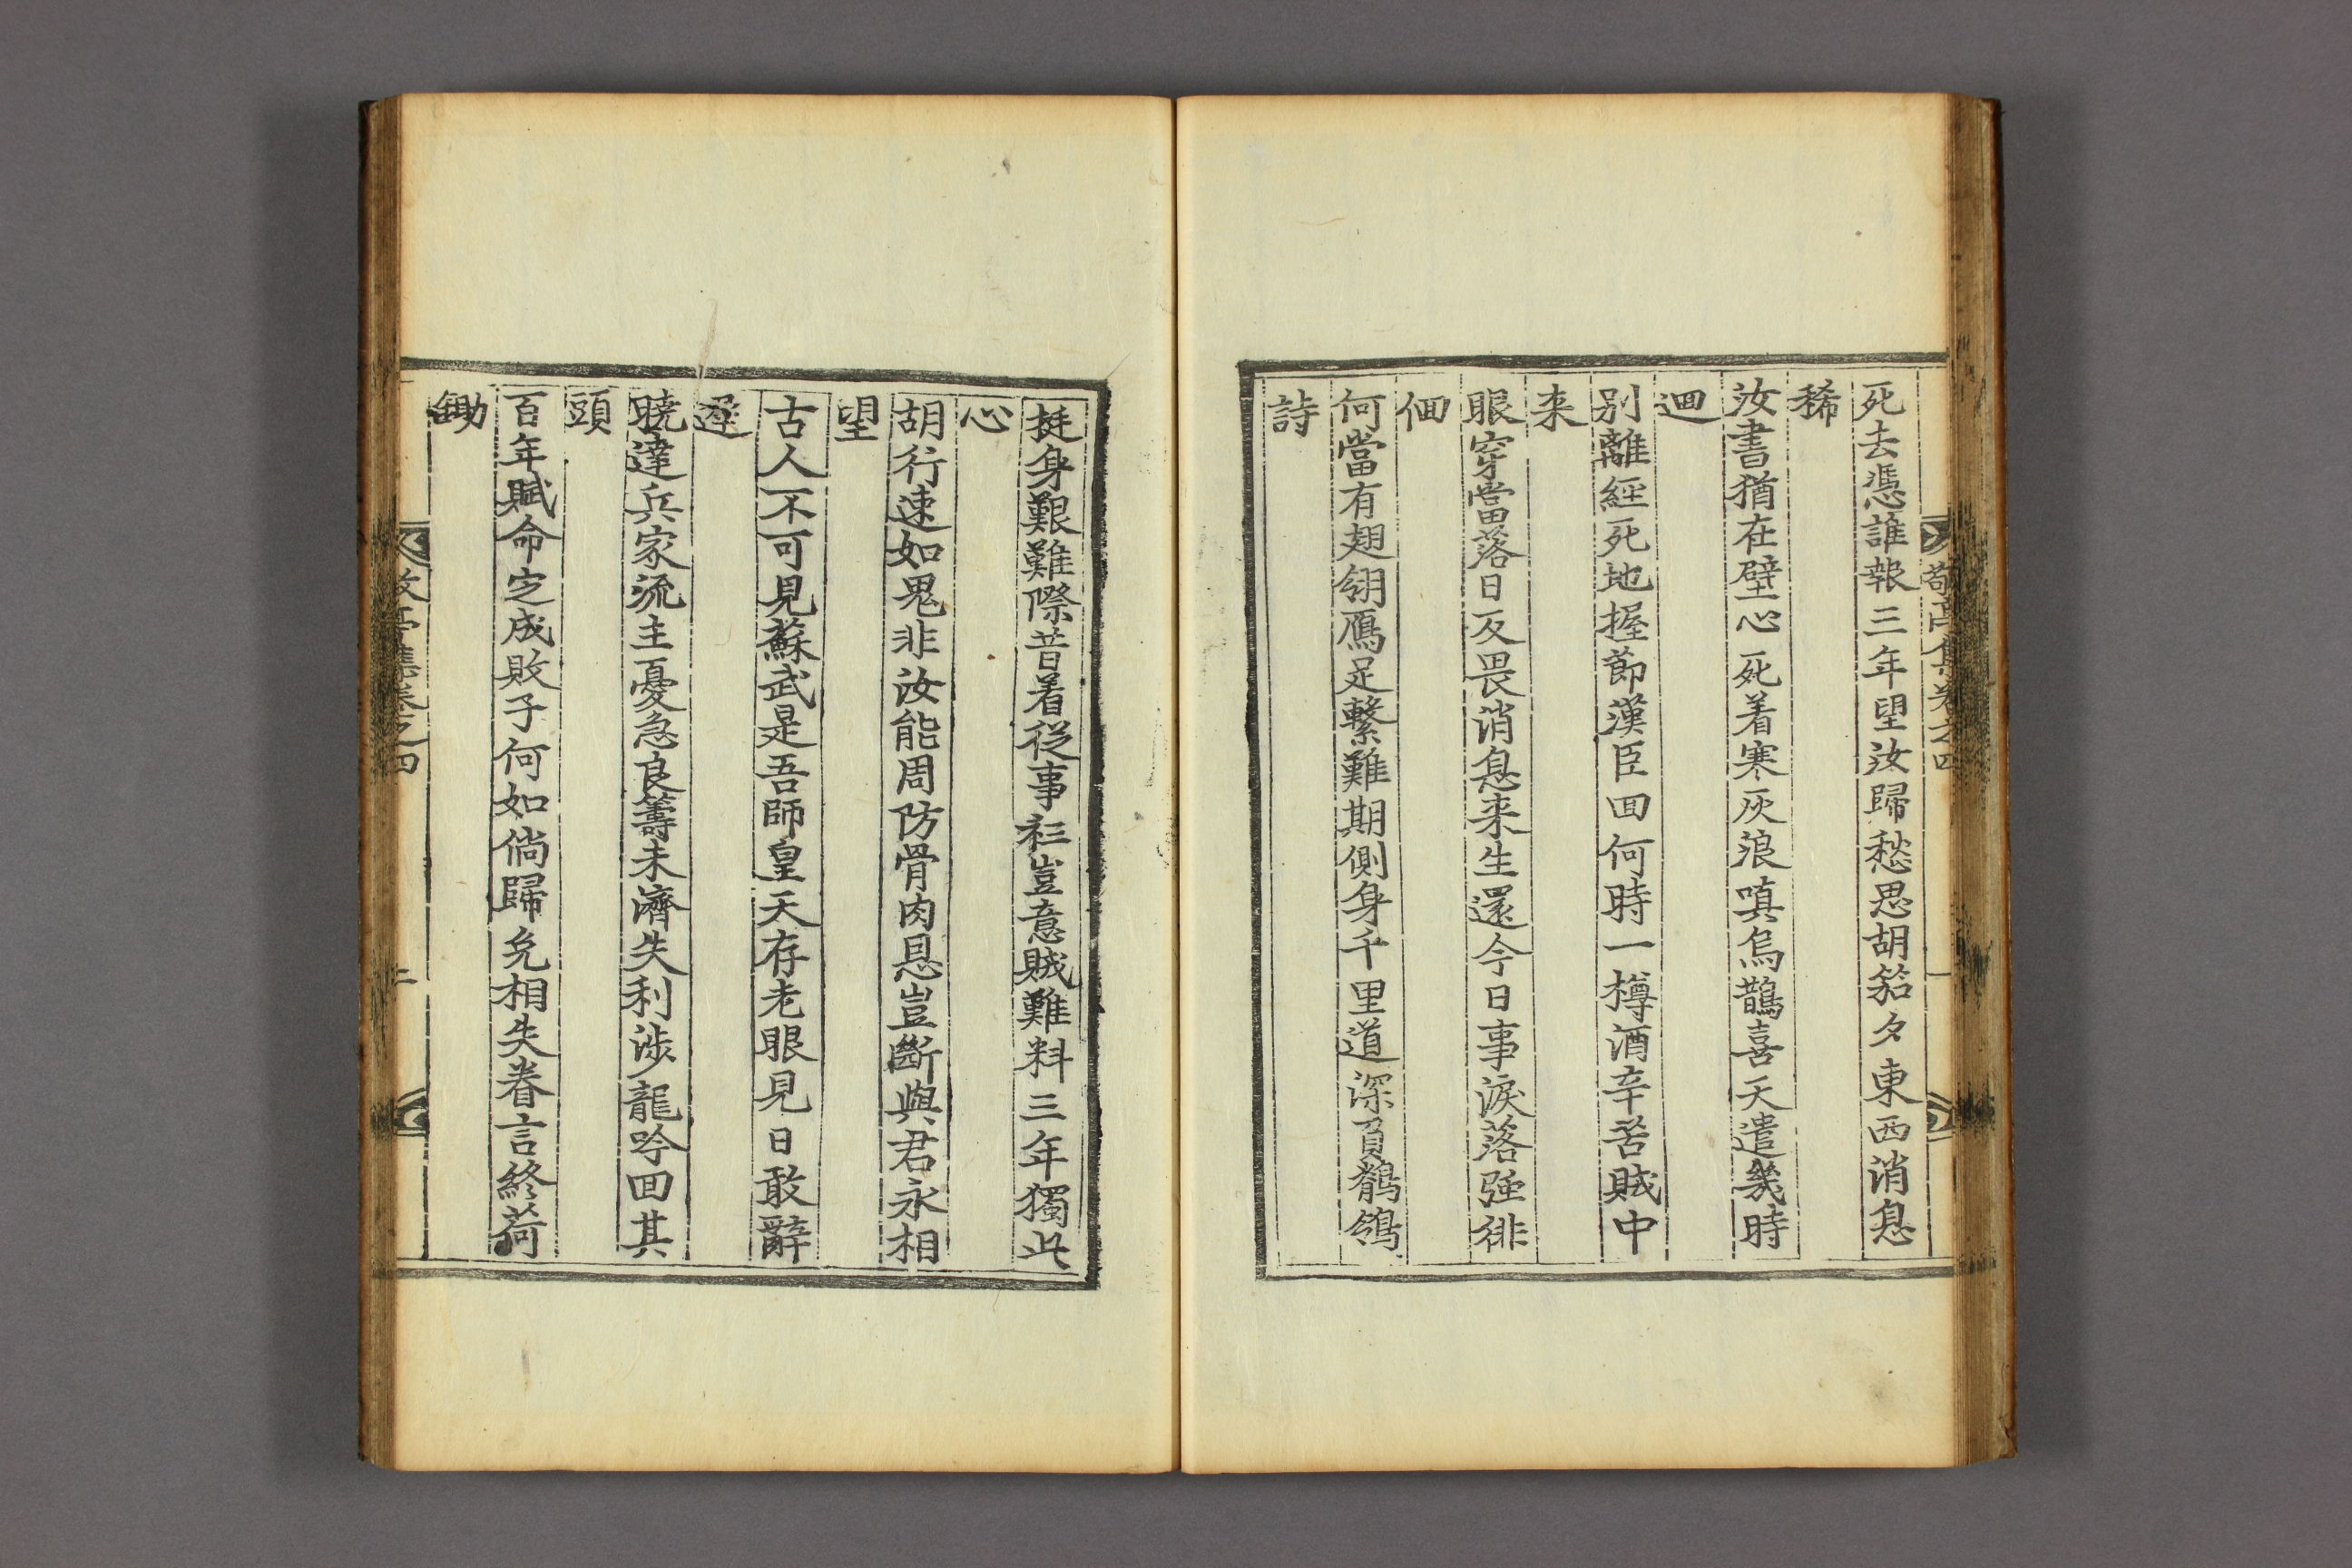 敬亭集卷之四
一
死去憑誰報三年望汝歸愁思胡笳夕東西消息
稀
汝書猶在壁心死着寒灰浪嗔烏鵲喜天遣幾時
迴
別離經死地握節漢臣回何時一樽酒辛苦賊中
来
眼穿當落日反畏消息来生還今日事淚落强徘
佪
何當有翅翎鴈足繫難期側身千里道深負鶺鴒
詩
挺身艱難際昔着從事衫豈意賊難料三年獨此
心
胡行速如鬼非汝能周防骨肉恩豈斷與君永相
望
古人不可見蘇武是吾師皇天存老眼見日敢辭
遲
曉達兵家流主憂急良籌未濟失利涉龍吟回其
頭
百年賦命定成敗子何如倘歸免相失眷言終荷
鋤
敬亭集卷之四
二